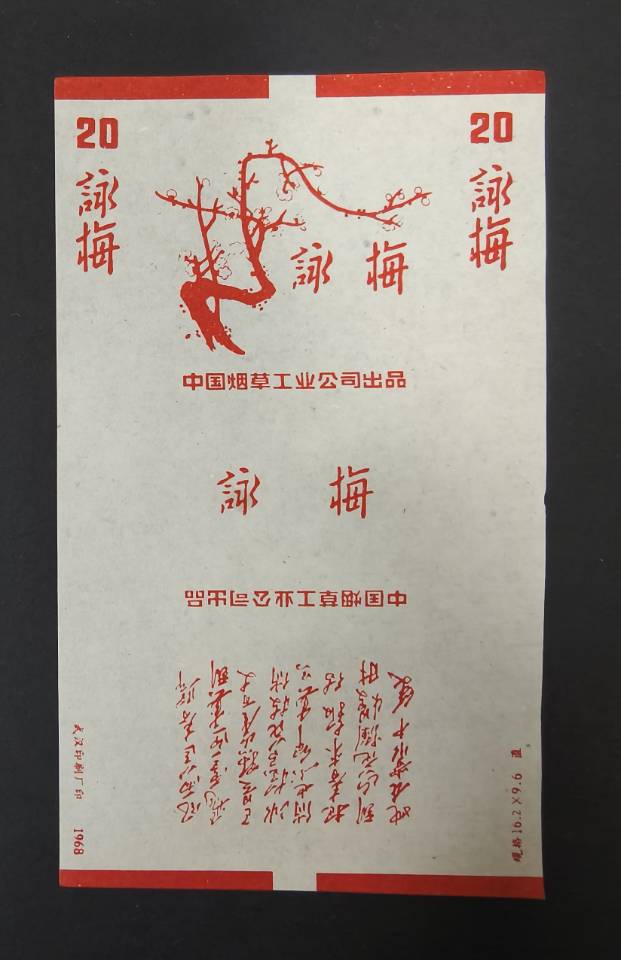 20
詠梅
20
詠梅
詠梅
中国烟草工业公司出品
詠梅
中国烟草工业公司出品
风雨送春归
飞雪迎春到
已是悬崖百丈
冰犹有花枝俏
俏也不争春只
把春来报待
到山花烂漫时
她在丛中笑
武汉印刷厂印 1968
规格16.2×9.6 直